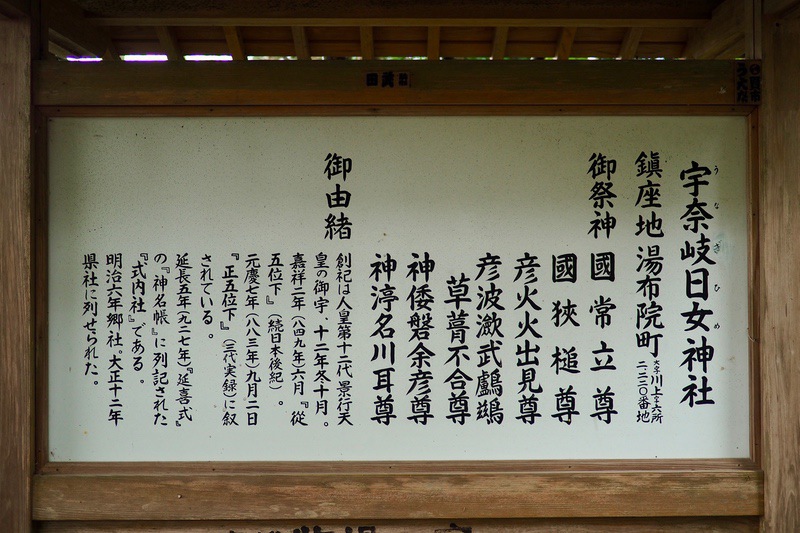 宇奈岐日女神社
うなぎひめ
鎮座地 湯布院町 大字川上字六所 二二三〇番地
御祭神 國常立尊
國狭槌尊
彦火火出見尊
彦波瀲武鸕鷀
草葺不合尊
神倭磐余彦尊
神渟名川耳尊
御由緒
創祀は人皇第十二代 景行天
皇の御宇、十二年冬十月。
嘉祥二年(八四九年)六月『従
五位下』(続日本後紀)。
元慶七年(八八三年)九月二日
『正五位下』(三代実録)に叙
されている。
延長五年(九二七年)『延喜式』
の『神名帳』に列記された
『式内社』である。
明治六年郷社。大正十二年
県社に列せられた。